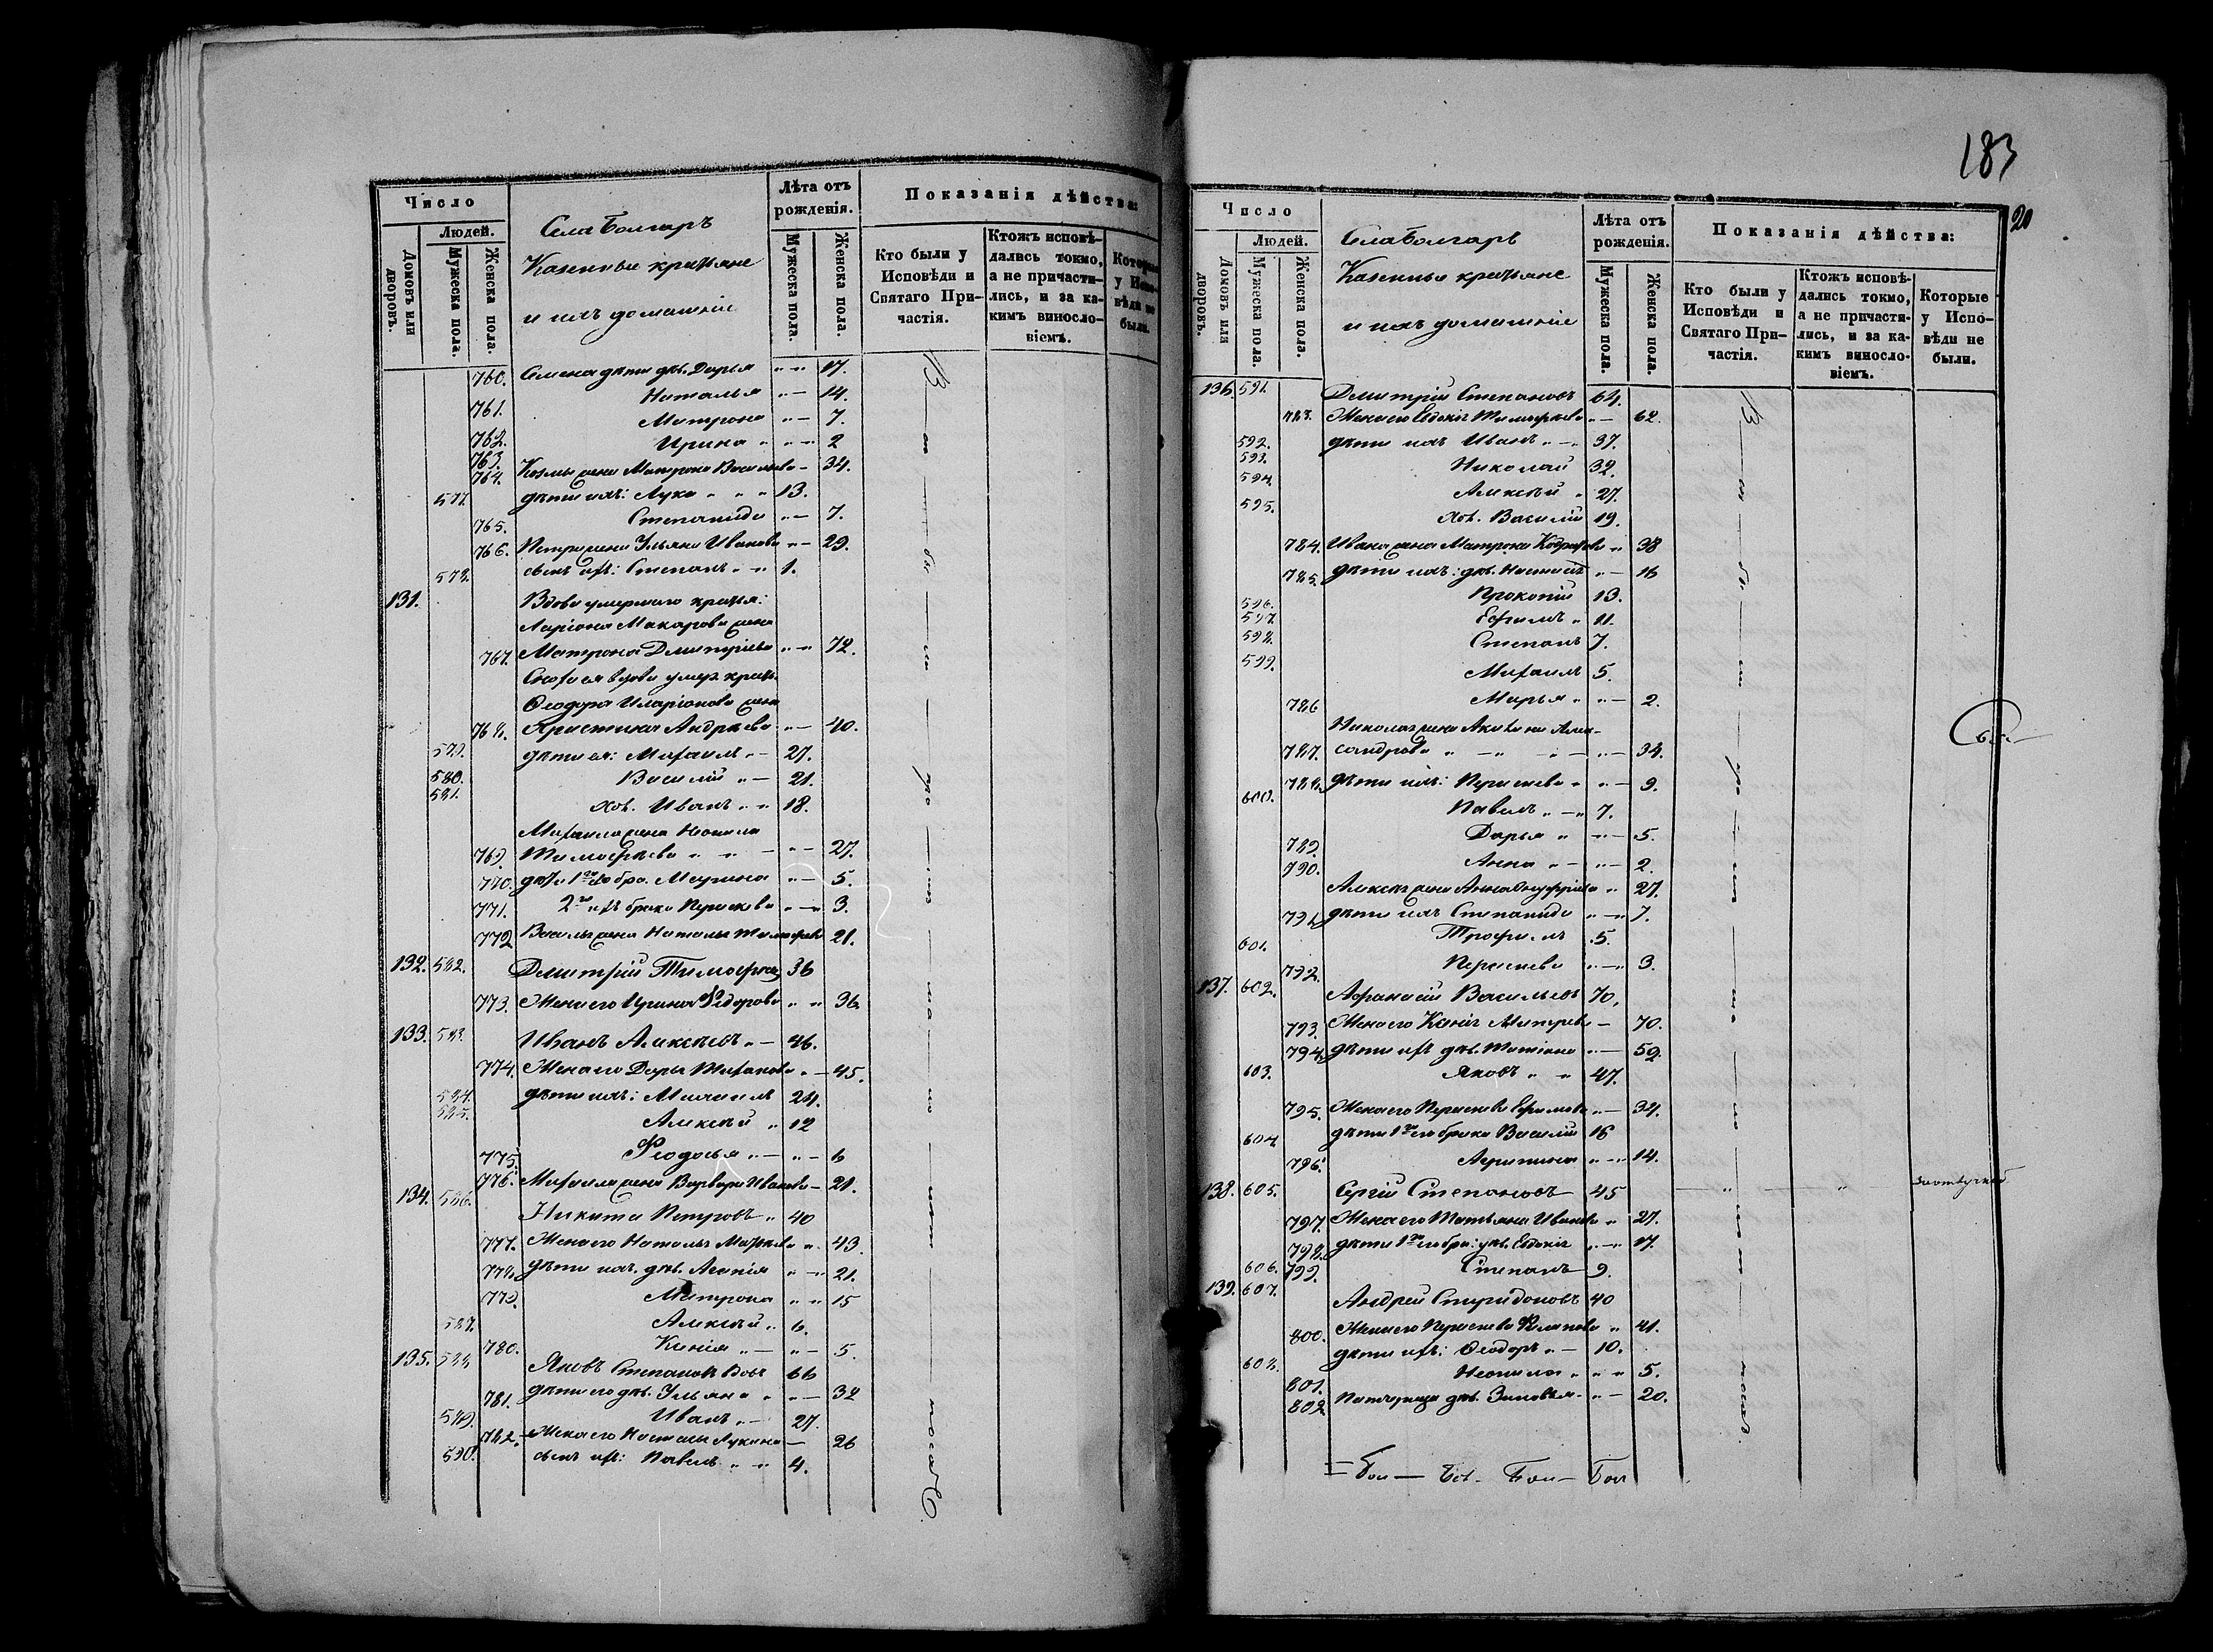 Число
Людей.
Домовъ или дворовъ.
Мужеска пола.
Женска пола.
Села Болгаръ
Казенные крестьяне
и ихъ домашніе
Лѣта отъ рожденія.
Мужеска пола.
Женска пола.
Показанія дѣйства:
Кто были у Исповѣди и Святаго Причастія.
Ктожъ исповѣдались токмо, а не причастились, и за какимъ винословіемъ.
Которые у Исповѣди не были.
760. Семена дѣти дѣв. Дарья " — 17.
761. Наталья " — 14.
762. Матрона " — 7.
763. Ирина " " — 2
764. Козмы жена Матрона Васильева — 34.
577. дѣти ихъ: Лука " " " 13.
765. Степанида " — 7.
766. Петра жена Ульяна Иванова " — 29.
578. сынъ ихъ: Степанъ " " 1.
131. Вдова умершаго крестья:
Ларіона Макарова жена
767. Матрона Дмитріева " — 72.
Сноха ея вдова умер. крест.
Ѳеодора Иларіонова жена
768. Христина Андреева " — 40.
579. дѣти ея: Михаилъ " — 27.
580. Василій " — 21.
581. хол. Иванъ " " 18.
Михаила жена Неонила
769. Тимофеева " " — " — 27.
770. дѣти 1го бра. Марина " — 5.
771. 2го ихъ брака Параскева " — 3.
772 Василья жена Наталья Тимофеева 21.
132. 582. Дмитрій Тимофеев 36
773. Жена его Ирина Ѳедорова " " 36
133. 583. Иванъ Алексѣевъ " — 46.
774. Жена его Дарья " — 45.
584. дѣти ихъ: Михаилъ 24.
585. Алексѣй " 12
775. Ѳеодосья " — " — 6
776. Михаила жена Варвара Иванова — 21.
134. 586. Никита Петровъ " 40
777. Жена его Наталья " 43.
778. дѣти ихъ. дѣв. Агапія " — 21.
779. Матрона " " 15
587. Алексѣй " 6.
780. Ксенія " — " — 5.
135. 588 Яковъ Степановъ Вдов 66
781. дѣти его дѣв. Ульяна " " — 32
589. Иванъ " — 27.
782. Жена его Наталья Лукина — 26
590. сынъ ихъ: Павелъ " " 4.
183
20
Число
Людей.
Домовъ или дворовъ.
Мужеска пола.
Женска пола.
Села Болгаръ
Казенные крестьяне
и ихъ домашніе
Лѣта отъ рожденія.
Мужеска пола.
Женска пола.
Показанія дѣйства:
Кто были у Исповѣди и Святаго Причастія.
Ктожъ исповѣдались токмо, а не причастились, и за какимъ винословіемъ.
Которые у Исповѣди не были.
136 591. Дмитрій Степановъ 64.
783. Жена его Евдокія Тимофеева " — 62.
592. дѣти ихъ Иванъ " — " 37.
593. Николай 32.
594. Алексѣй " 27.
595. хол. Василій 19.
784. Ивана жена Матрона " 38
785. дѣти ихъ: дѣв. Настасья " — 16
596. Прокопій 13.
597 Ефимъ " 11.
598. Степанъ 7.
599. Михаилъ 5.
786 Марья " " — 2.
Николая жена Акилина Алек-
787. сандрова " — " — " — 34.
788. дѣти ихъ: Параскева " " — 9.
600. Павелъ " — " 7.
789. Дарья " " — 5.
790. Анна " — " — 2.
Алексѣя жена Анна Онуфріева " 27.
791. дѣти ихъ Степанида " — " 7.
601. Трофимъ 5.
792. Параскева " — " 3.
137. 602. Афанасій Васильевъ 70.
793. Жена его Ксенія — 70.
794. дѣти ихъ дѣв. Татіана " — 52.
603. Яковъ " " 47.
795. Жена его Параскева Ефимова " — 34.
604. дѣти 1го его брака Василій 16
796. Агрипина " — " 14.
138. 605. Сергій Степановъ — 45
797. Жена его Татьяна Иванова " 27.
798. дѣти 1го его бра: дѣв. Евдокія " — " 17.
606. 799. Степанъ 9.
139. 607. Андрей Спиридоновъ 40
800. Жена его Параскева " 41.
608. дѣти ихъ: Ѳеодоръ " — 10.
801. Неонила " " " 5.
802 Падчерица дѣв. Зиновья " — 20.